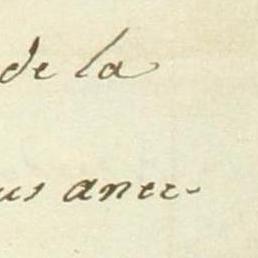 de la
us anec-